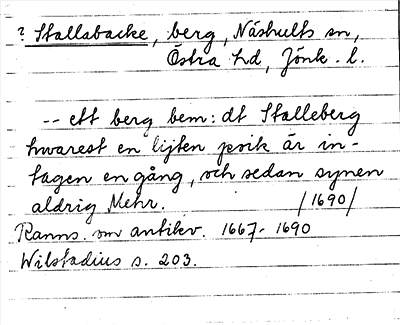 ? Stallabacke, berg, Näshults sn,
Östra hd, Jönk. l.
-- ett berg bem: dt Stalleberg
hwarest en lijten poik är in-
tagen en gång, och sedan synen
aldrig Mehr. /1690/
Ranns. om antikv. 1667-1690
Wilstadius s. 203.